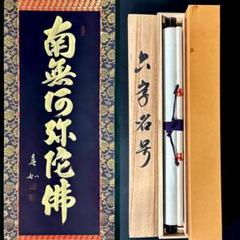 南無阿弥陀佛
六字名号